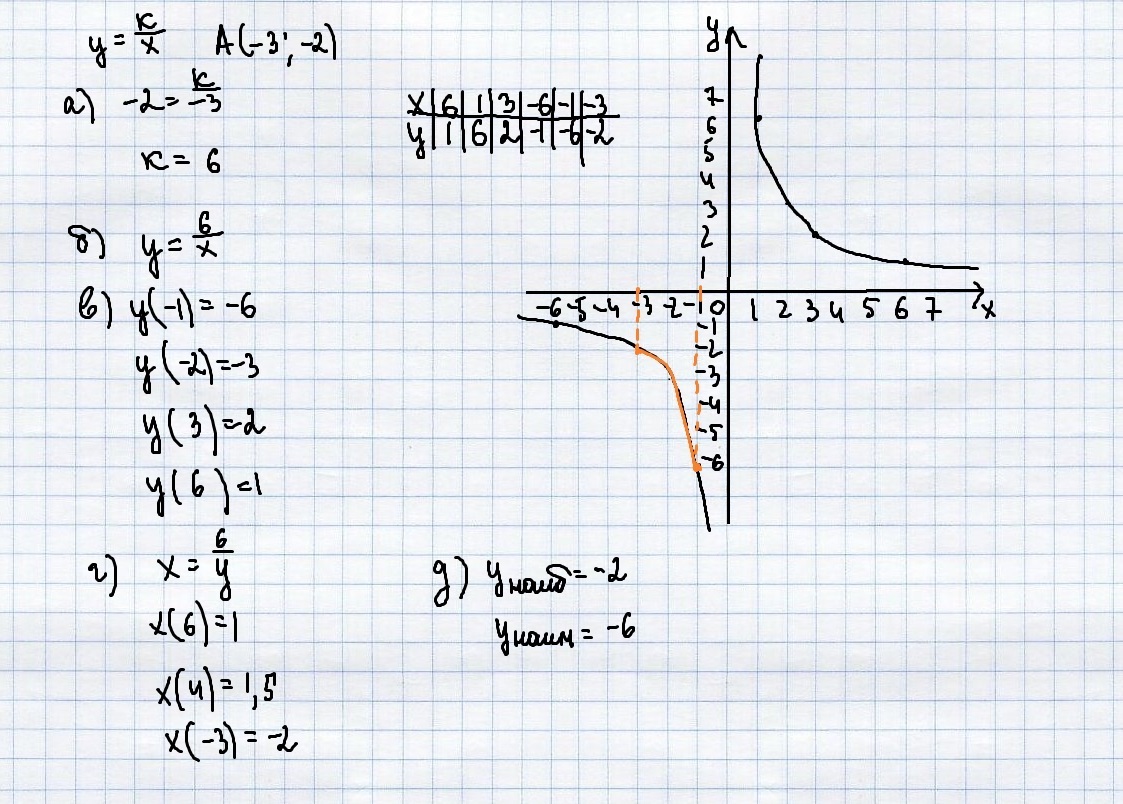 y = к/x A(-3; -2)
а) -2 = к/-3
к = 6
x | 6 | 1 | 3 | -6 | -1 | -3
y | 1 | 6 | 2 | -1 | -6 | -2
б) y = 6/x
в) y(-1) = -6
y(-2) = -3
y(3) = 2
y(6) = 1
г) x = 6/y
x(6) = 1
x(4) = 1,5
x(-3) = -2
д) y наиб = -2
y наим = -6
y
7
6
5
4
3
2
1
-6 -5 -4 -3 -2 -1 0 1 2 3 4 5 6 7 x
-1
-2
-3
-4
-5
-6